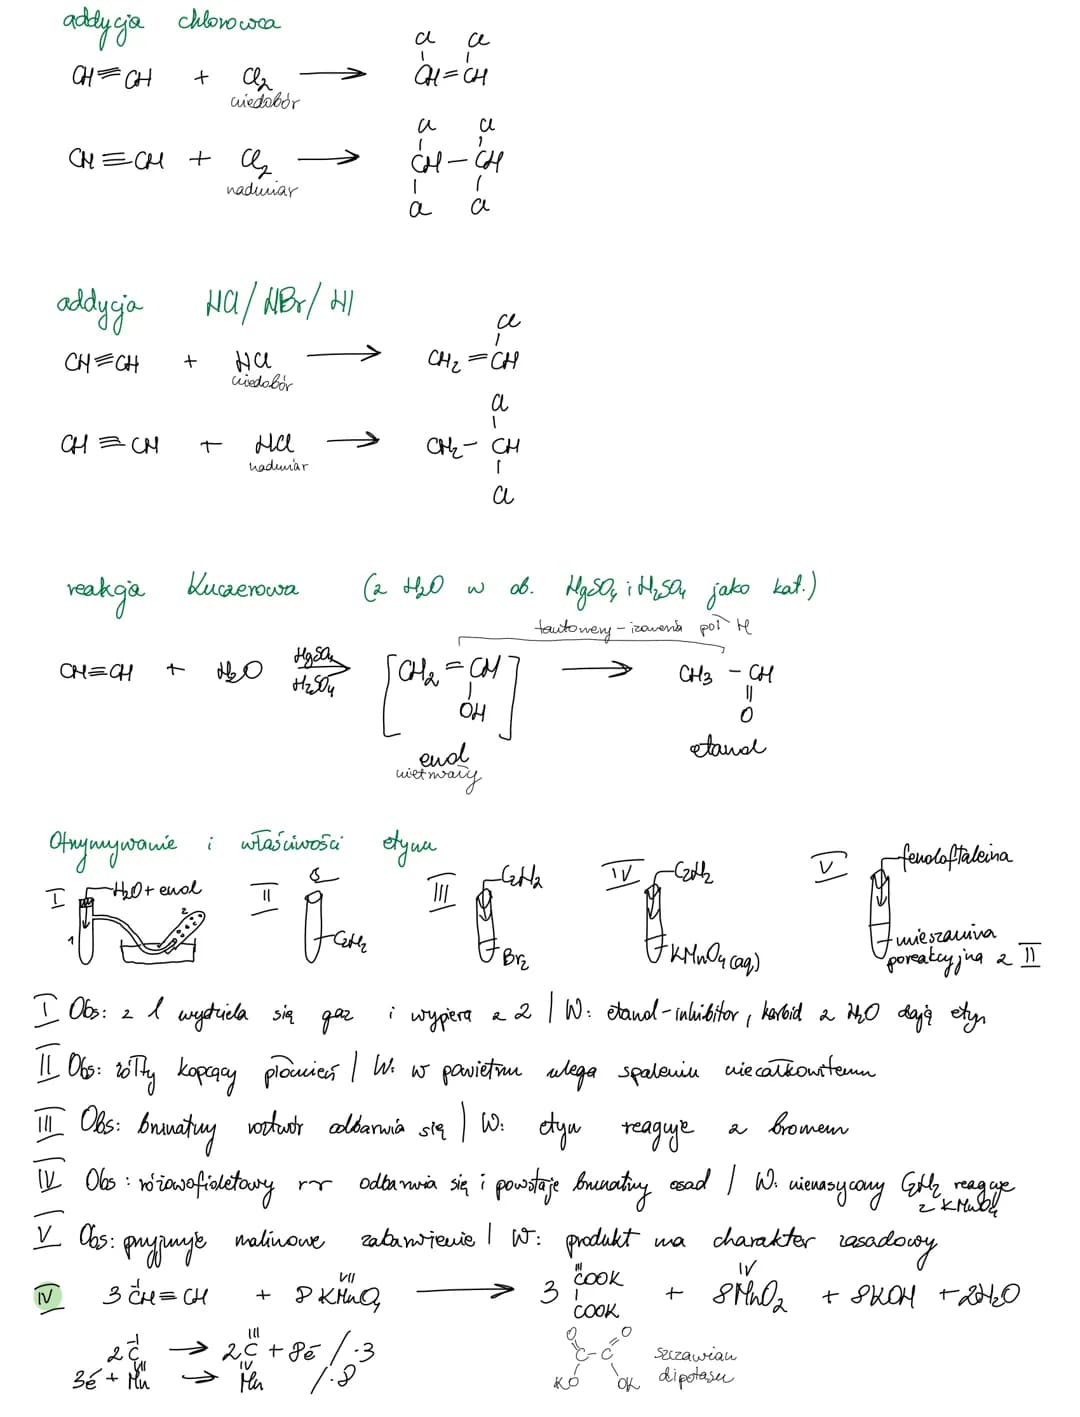 addycja chlorowca
CH≡CH + Cl₂ niedobór ⟶ Cl Cl CH=CH
CH≡CH + Cl₂ nadmiar ⟶ Cl Cl CH–CH Cl Cl
addycja HCl/HBr/HI
CH≡CH + HCl niedobór ⟶ CH₂=CH Cl
CH≡CH + HCl nadmiar ⟶ Cl CH₂–CH Cl
reakcja Kuczerowa (z H₂O w ob. HgSO₄ i H₂SO₄ jako kat.)
tautomery - izomeria poł H
CH≡CH + H₂O HgSO₄ H₂SO₄ ⟶ [CH₂=CH OH] ⟶ CH₃–CH=O
enol nietrwały
etanal
Otrzymywanie i właściwości etynu
I H₂O+ enol 1 2
II C₂H₂
III C₂H₂ Br₂
IV C₂H₂ KMnO₄(aq)
V fenoloftaleina mieszanina poreakcyjna z II
I Obs: z 1 wydziela się gaz i wypiera z 2 | W: etanol-inhibitor, karbid z H₂O dają etyn
II Obs: żółty kopcący płomień | W: w powietrzu ulega spaleniu niecałkowitemu
III Obs: brunatny roztwór odbarwia się | W: etyn reaguje z bromem
IV Obs: różowofioletowy rr odbarwia się i powstaje brunatny osad | W: nienasycony C₂H₂ reaguje z KMnO₄
V Obs: przyjmuje malinowe zabarwienie | W: produkt ma charakter zasadowy
IV 3 CH≡CH -I + 8 KMnO₄ VII ⟶ 3 COOK III COOK + 8MnO₂ IV + 8KOH + 2H₂O
2C -I ⟶ 2C III + 8é /·3
3é + Mn VII ⟶ Mn IV /·8
O O C–C KO OK
szczawian dipotasu